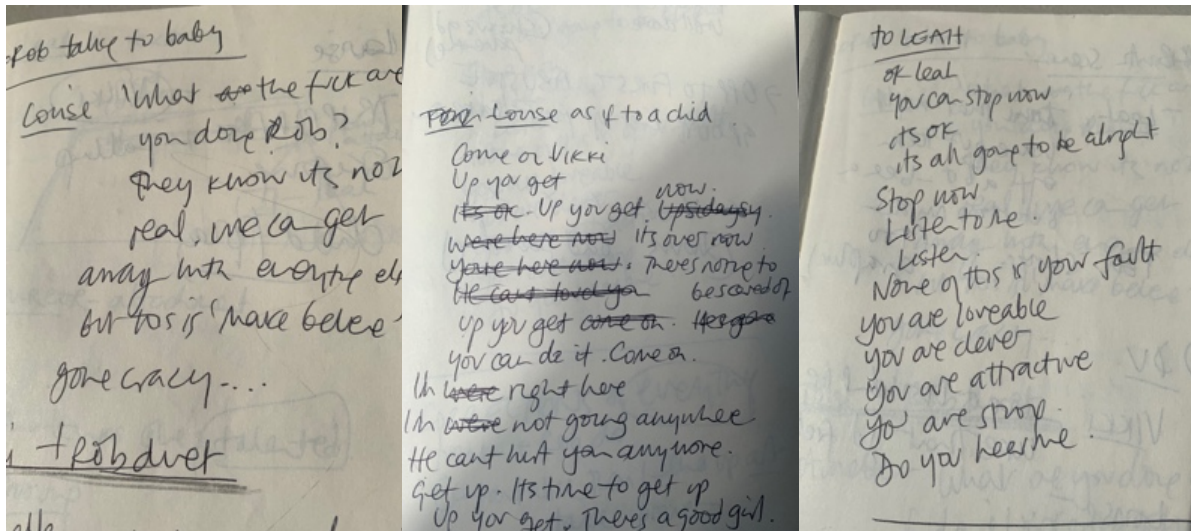 Rob talkg to baby
Louise 'What are the fuck are
you doing Rob?
they know its not
real. we ca get
away with everythe els
but this is 'make beleve'
gone crazy....
+ Rob duet
Louise as if to a child
Come on Vikki
Up you get
Its ok. Up you get now. Upsidaysy.
were here now Its over now
youre here now. Theres nothing to
He cant touch you be scared of
up you get come on. Hes gone
you can do it. Come on.
Im were right here
Im were not going anywhere
He cant hurt you anymore.
Get up. Its time to get up
Up you get. Theres a good girl.
to LEAH
ok leah
you can stop now
its ok
its all going to be alright
Stop now
Listen to me.
Listen.
None of this is your fault
you are loveable
you are clever
you are attractive
you are strong.
Do you hear me.